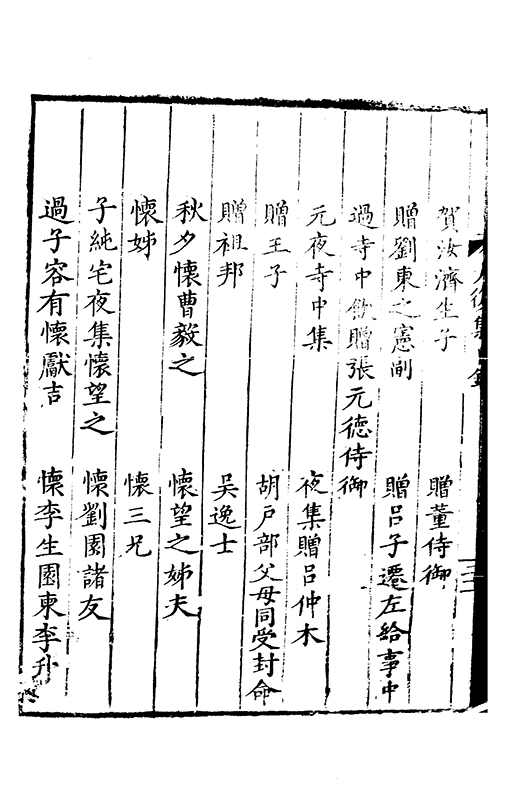 賀汝濟生子 贈董侍御
贈劉東之憲副 贈呂子遷左給事中
過寺中飲贈張元德侍御
元夜寺中集 夜集贈呂仲木
贈王子 胡戶部父母同受封命
贈祖邦 吴逸士
秋夕懷曹毅之 懷望之姊夫
懷姊 懷三兄
子純宅夜集懷望之 懷劉園諸友
過子容有懷獻吉 懷李生園東李升